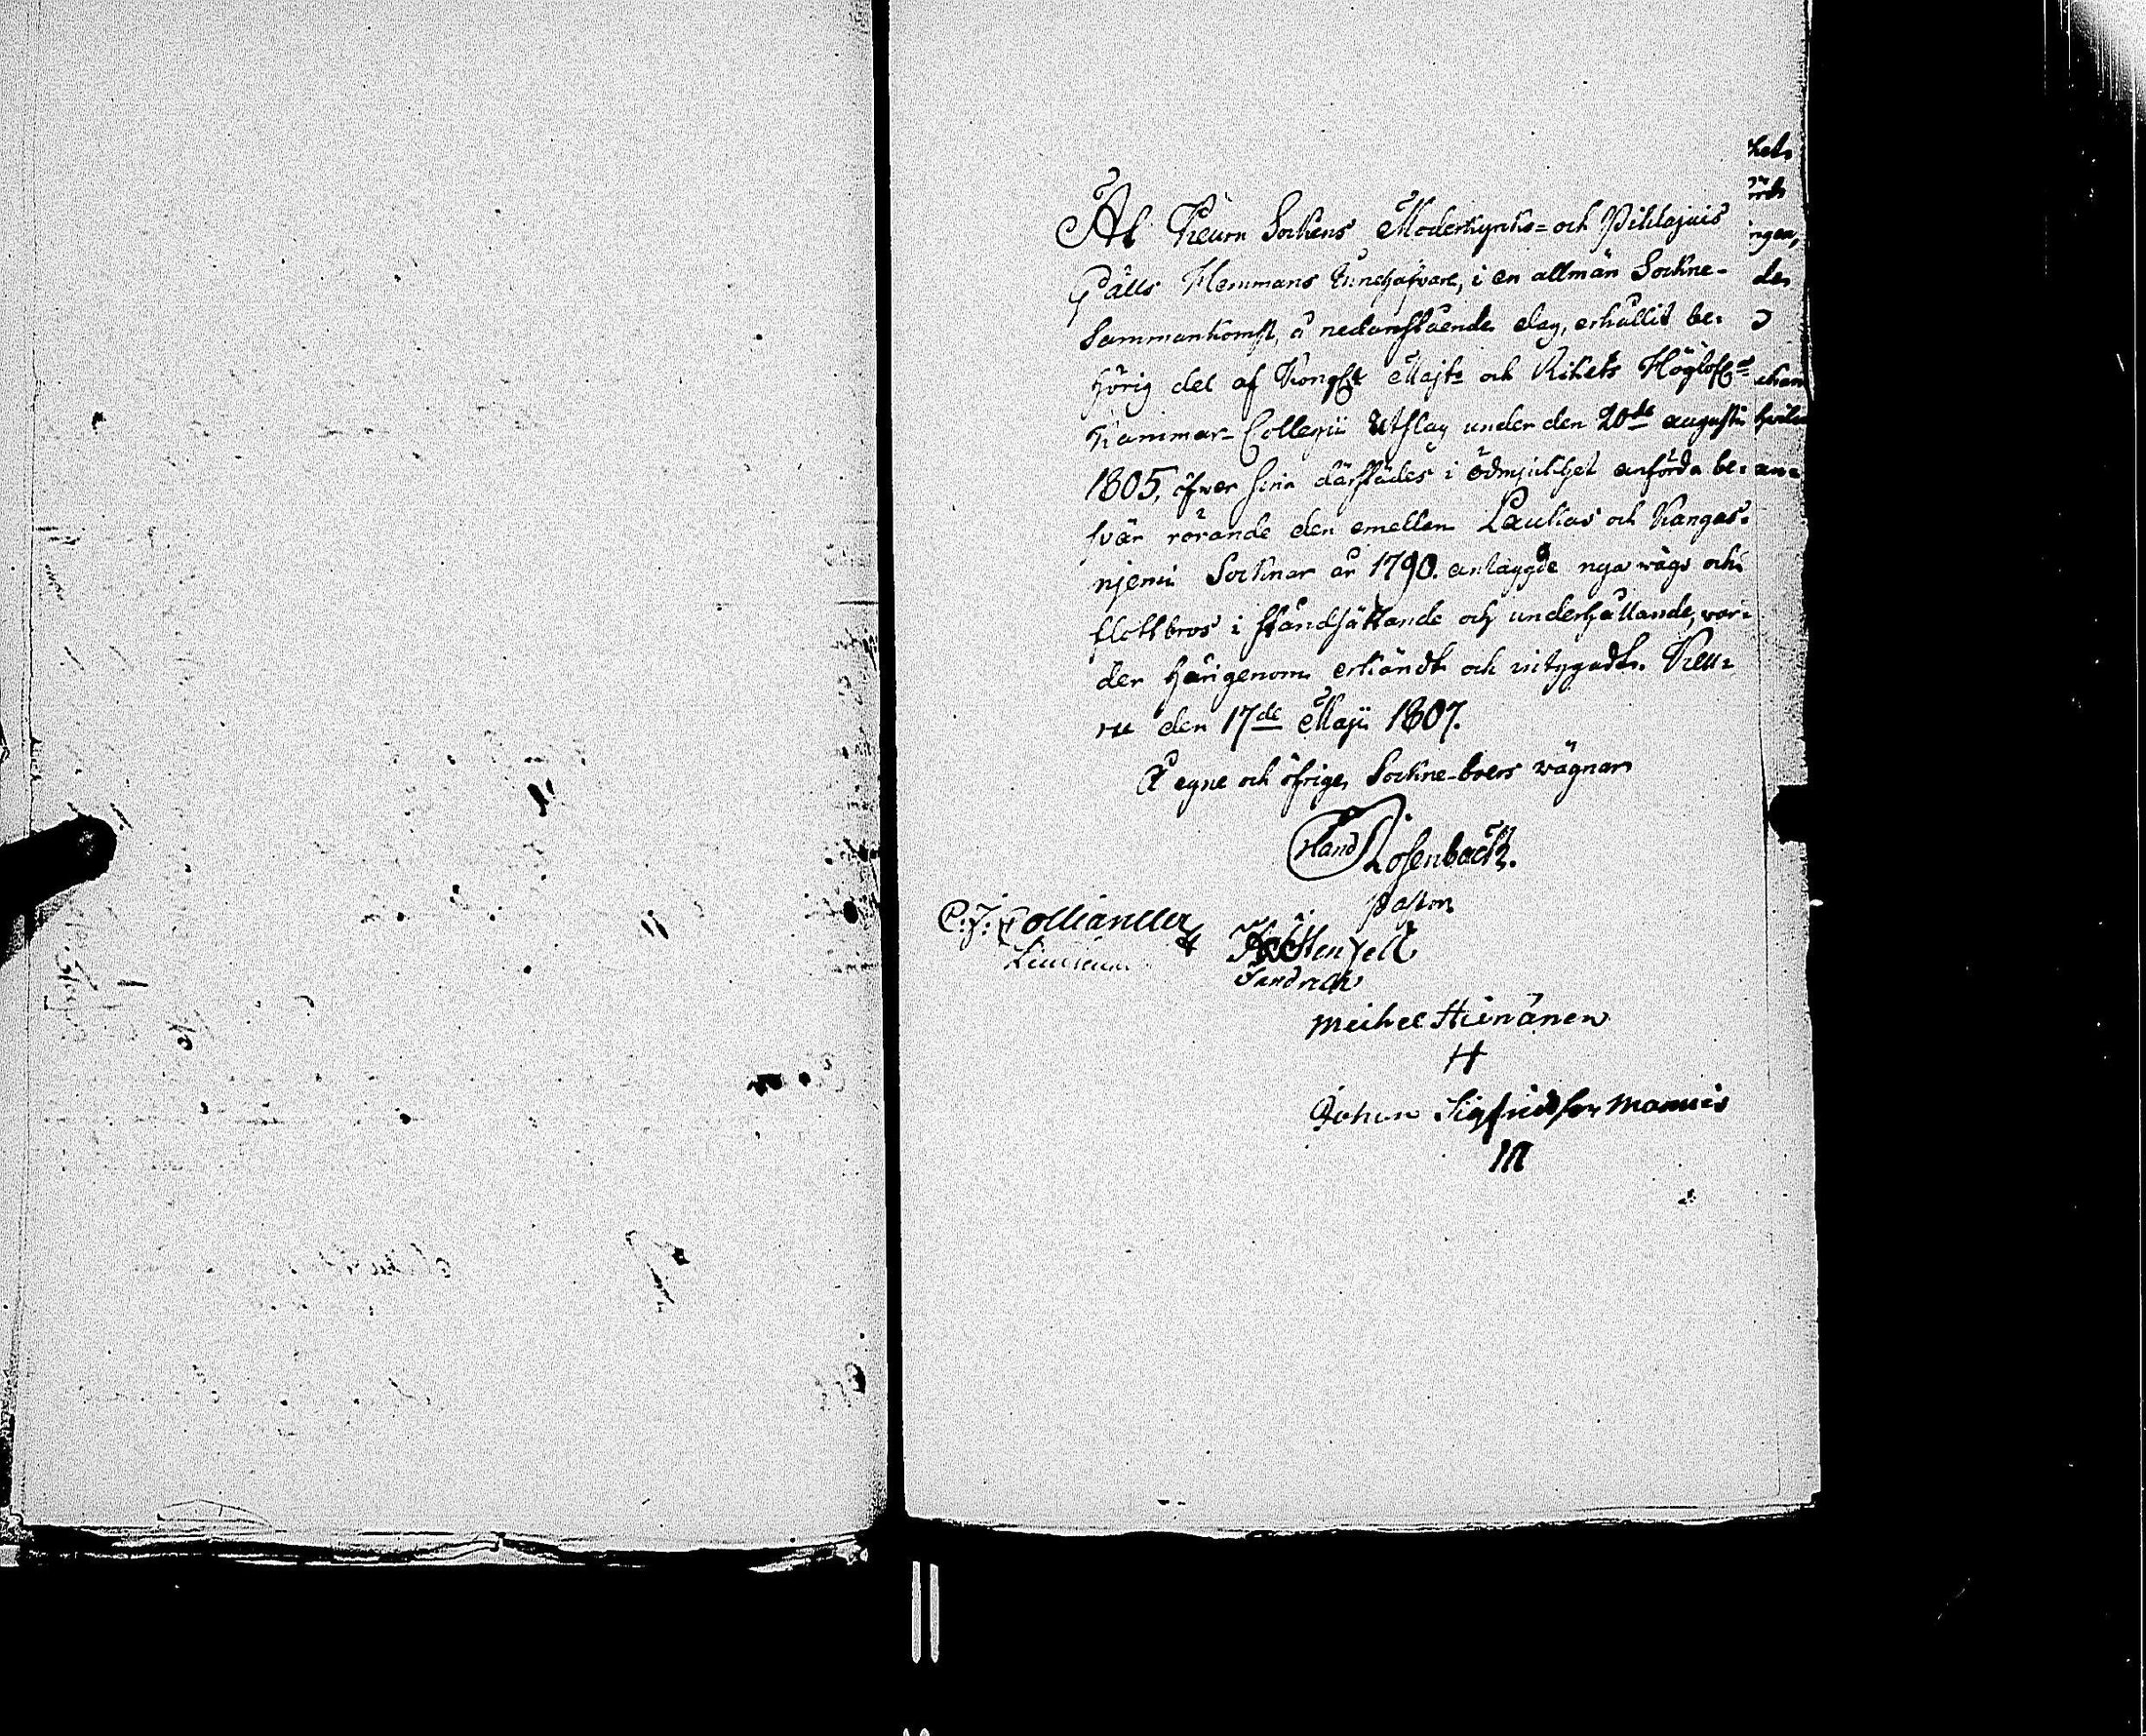 At Keuru Sockens Moderkyrko- och Pihlajavis
Gälls Hemmans Innehafvare, i en allmän Sockne-
Sammankomst, å nedanstående dag, erhållit be-
hörig del af Kongl Majts och Rikets Höglofl.
Kammar-Collegii Utslag under den 20de augusti
1805, öfver sina därstädes i ödmjukhet anförda be-
svär rörande den emellan Laukas och Kangas-
njemi Socknar år 1790. anlaggde nya vägs och
flottbros i ståndsättande och underhållande, var-
der härigenom erkändt och intygadt. Keu-
ru den 17de Maji 1807.
Å egne och öfrige Sockne-boers vägnar
Rosenback.
Pastor
C: J: Colliander
Meihel Hiinänen
H
Johan Sigfridsson Mamnis
M
hets
ngen,
den